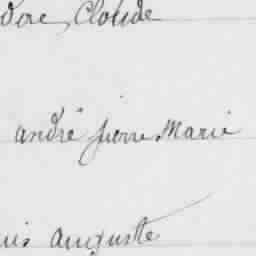 dore, Cloude
andré pierre Marie
uis auguste